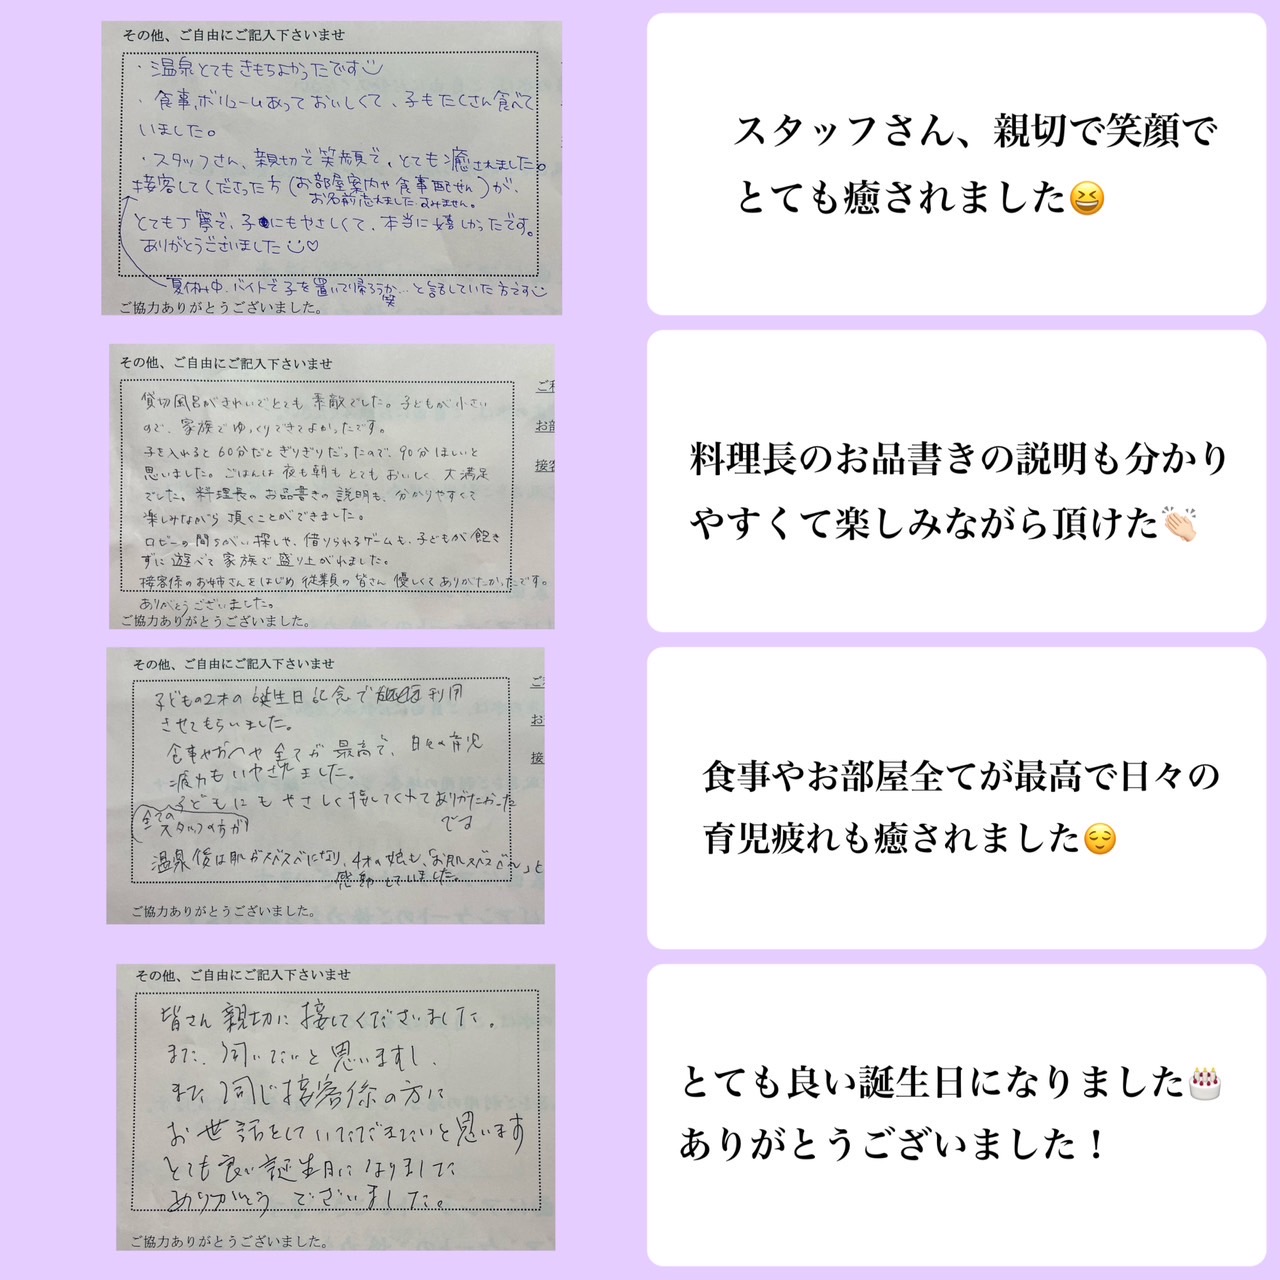 その他、ご自由にご記入下さいませ
・温泉とてもきもちよかったです
・食事、ボリュームあっておいしくて、子もたくさん食べて
いました。
・スタッフさん、親切で笑顔で、とても癒されました。
接客してくださった方(お部屋案内や食事配ぜん)が、
お名前忘れました。すみません。
とても丁寧で、子にもやさしくて、本当に嬉しかったです。
ありがとうございました♡
夏休み中、バイトで子を置いて帰ろうか…と話していた方です
笑
ご協力ありがとうございました。
スタッフさん、親切で笑顔で
とても癒されました😆
その他、ご自由にご記入下さいませ
貸切風呂がきれいでとても素敵でした。子どもが小さい
ので、家族でゆっくりできてよかったです。
子を入れると60分だとぎりぎりだったので、90分ほしいと
思いました。ごはんは夜も朝もとてもおいしく、大満足
でした。料理長のお品書きの説明も、分かりやすくて
楽しみながら頂くことができました。
ロビーの間ちがい探しや、借りられるゲームも、子どもが飽き
ずに遊べて家族で盛り上がれました。
接客係のお姉さんをはじめ従業員の皆さん優しくてありがたかったです。
ありがとうございました。
ご協力ありがとうございました。
料理長のお品書きの説明も分かり
やすくて楽しみながら頂けた👏🏻
その他、ご自由にご記入下さいませ
子どもの2才の誕生日記念で利用
させてもらいました。
食事やおへや全てが最高で、日々の育児
疲れもいやされました。
子どもにもやさしく接してくれてありがたかった
です
全ての
スタッフの方が
温泉後は肌がスベスベになり、4才の娘も、「お肌スベスベだね」と
感動していました。
ご協力ありがとうございました。
食事やお部屋全てが最高で日々の
育児疲れも癒されました😌
その他、ご自由にご記入下さいませ
皆さん親切に接してくださいました。
また、伺いたいと思いますし、
また同じ接客係の方に
お世話をしていただきたいと思います
とても良い誕生日になりました
ありがとうございました。
ご協力ありがとうございました。
とても良い誕生日になりました🎂
ありがとうございました！